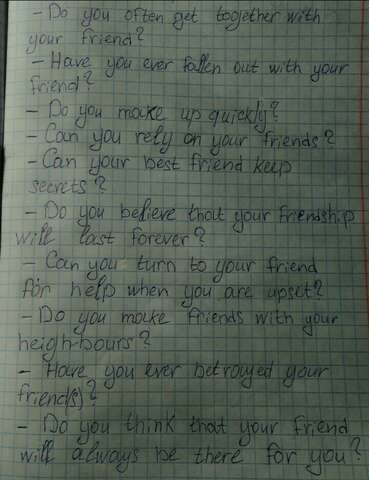 - Do you often get together with
your friend?
- Have you ever fallen out with your
friend?
- Do you make up quickly?
- Can you rely on your friends?
- Can your best friend keep
secrets?
- Do you believe that your friendship
will last forever?
- Can you turn to your friend
for help when you are upset?
- Do you make friends with your
heigh-bours?
- Have you ever betrayed your
friend(s)?
- Do you think that your friend
will always be there for you?